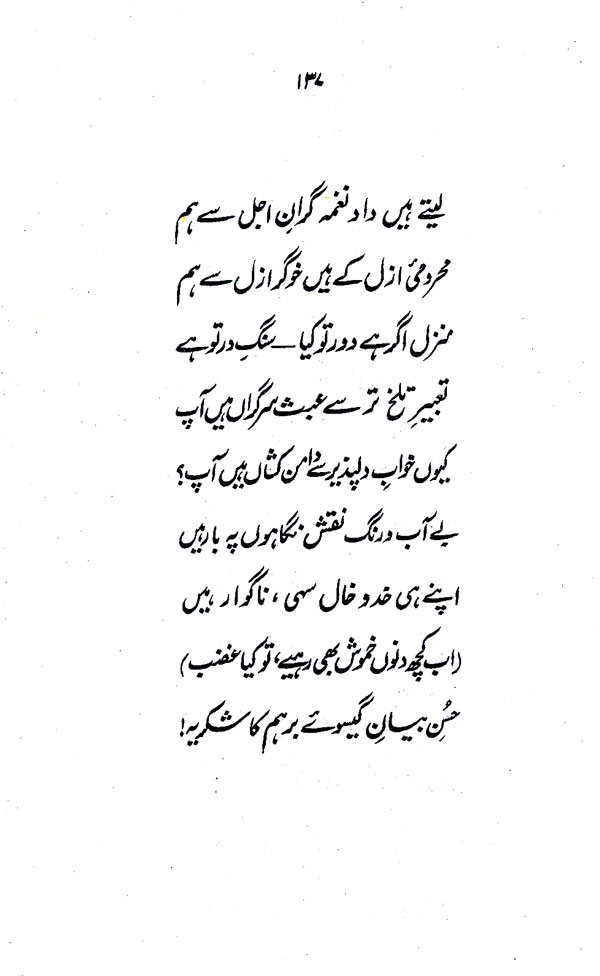 ۱۳۷
لیتے ہیں داد نغمہ گرانِ اجل سے ہم
محرومیٔ ازل کے ہیں خوگر ازل سے ہم
منزل اگر ہے دور تو کیا — سنگِ در تو ہے
تعبیرِ تلخ تر سے عبث سرگراں ہیں آپ
کیوں خوابِ دلپذیر سے دامن کشاں ہیں آپ؟
بے آب و رنگ نقش نگاہوں پہ بار ہیں
اپنے ہی خد و خال سہی، ناگوار ہیں
(اب کچھ دنوں خموش بھی رہیے، تو کیا غضب)
حُسنِ بیانِ گیسوئے برہم کا شکریہ!